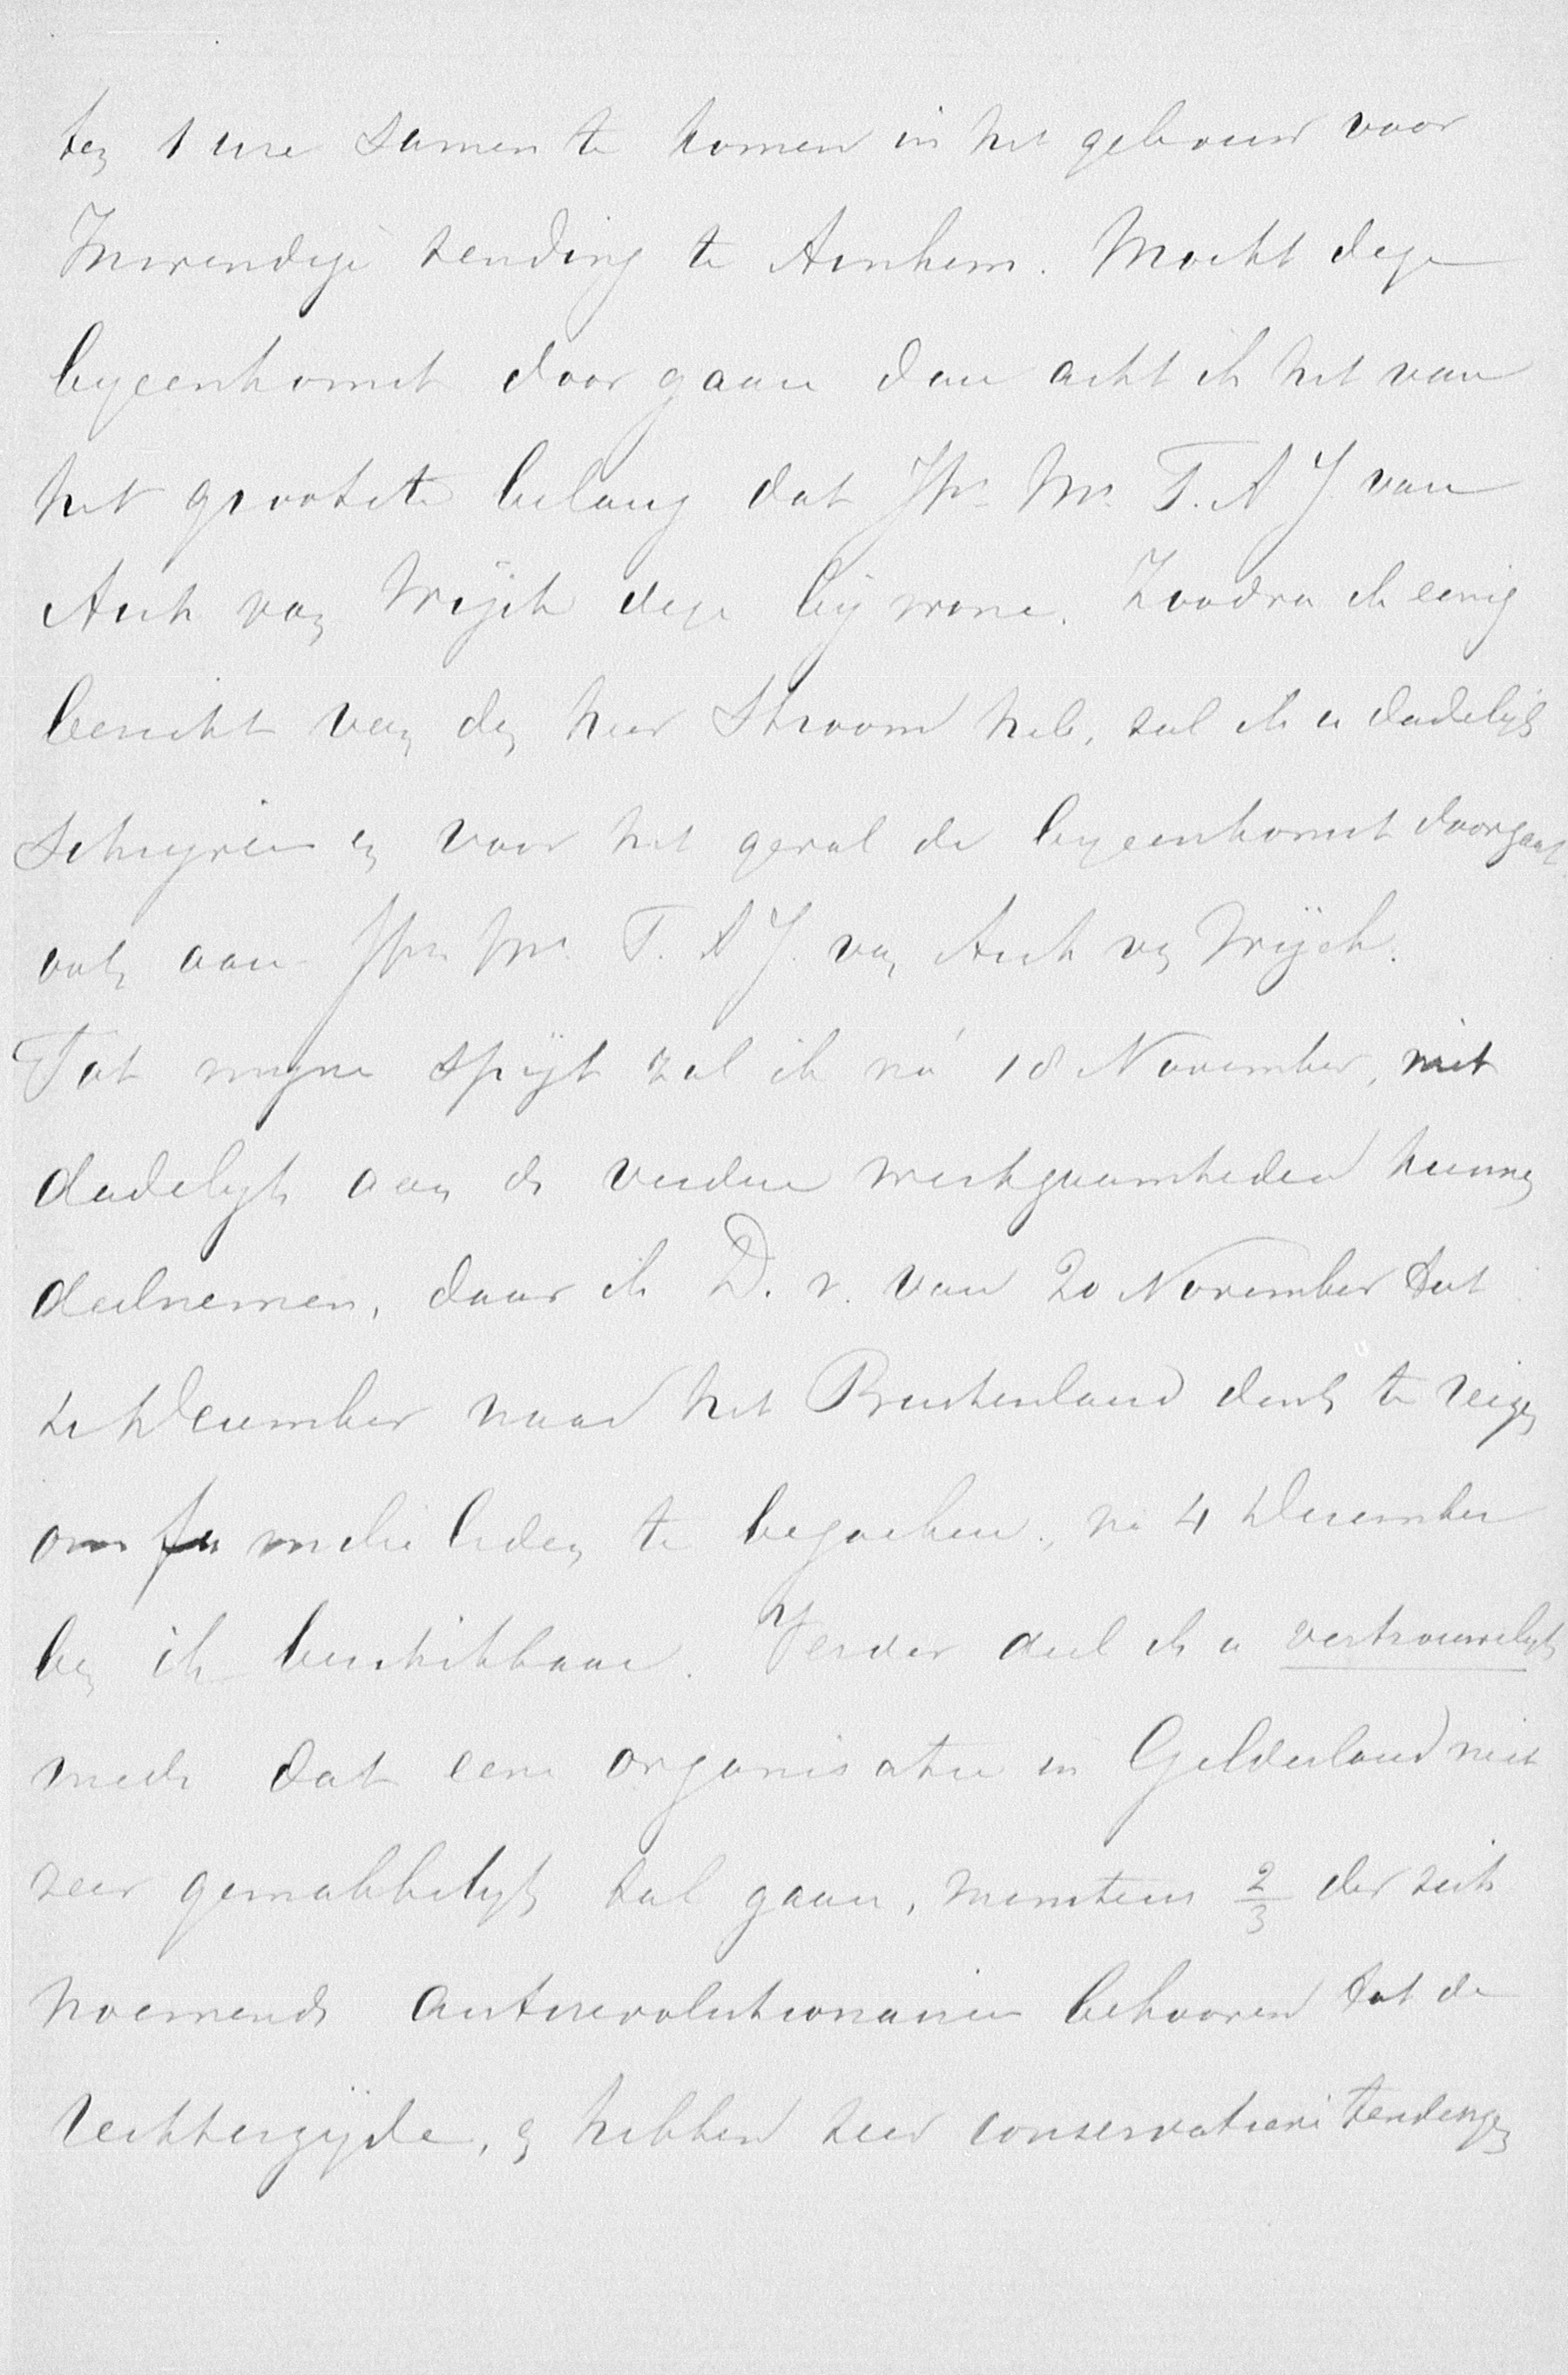 ten 1 ure samen te komen in het gebouw voor
Inwendige zending te Arnhem. Mocht deze
bijeenkomst doorgaan dan acht ik het van
het grootste belang dat Jhr Mr. T. A J van
Asch van Wijck deze bijwone. Zoodra ik eenig
bericht van den heer Stroom heb, zal ik u dadelijk
schrijven en voor het geval de bijeenkomst doorgaat
ook aan Jhr Mr. T. A J. van Asch van Wijck.
Tot mijne spijt zal ik ná 18 November, niet
dadelijk aan de verdere werkzaamheden kunnen
deelnemen, daar ik D. v. van 20 November tot
December naar het Buitenland denk te reizen
om familie leden te bezoeken, na 4 December
ben ik beschikbaar. Verder deel ik u vertrouwelijk
mede dat eene organisatie in Gelderland niet
zeer gemakkelijk zal gaan, minstens 2/3 der zich
noemende antirevolutionairen behooren tot de
rechterzijde, en hebben zeer conservatieve tendenzen